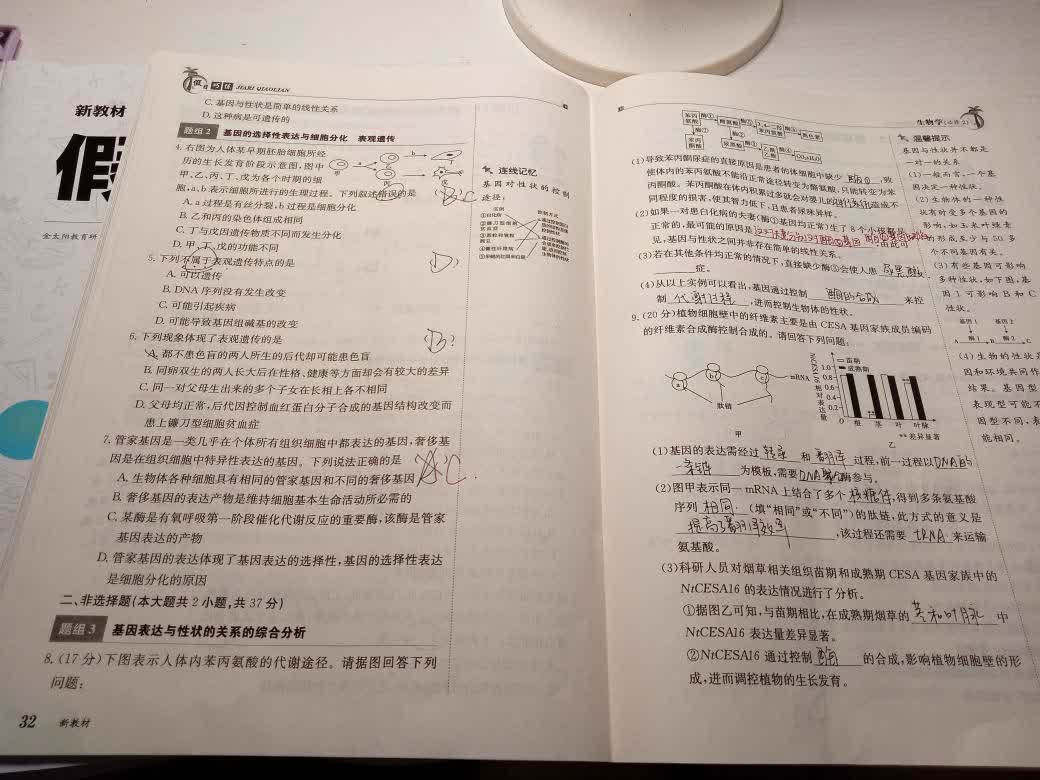 新教材
金太阳教育研
假日巧练 JIARI QIAOLIAN
C. 基因与性状是简单的线性关系
D. 这种病是可遗传的
题组2 基因的选择性表达与细胞分化 表观遗传
4. 右图为人体某早期胚胎细胞所经
历的生长发育阶段示意图,图中
甲、乙、丙、丁、戊为各个时期的细
胞,a、b表示细胞所进行的生理过程。下列叙述错误的是
A. a过程是有丝分裂,b过程是细胞分化
B. 乙和丙的染色体组成相同
C. 丁与戊因遗传物质不同而发生分化
D. 甲、丁、戊的功能不同
5. 下列不属于表观遗传特点的是
D
A. 可以遗传
B. DNA序列没有发生改变
C. 可能引起疾病
D. 可能导致基因组碱基的改变
6. 下列现象体现了表观遗传的是
B?
A. 都不患色盲的两人所生的后代却可能患色盲
B. 同卵双生的两人长大后在性格、健康等方面却会有较大的差异
C. 同一对父母生出来的多个子女在长相上各不相同
D. 父母均正常,后代因控制血红蛋白分子合成的基因结构改变而
患上镰刀型细胞贫血症
7. 管家基因是一类几乎在个体所有组织细胞中都表达的基因,奢侈基
因是在组织细胞中特异性表达的基因。下列说法正确的是
C
A. 生物体各种细胞具有相同的管家基因和不同的奢侈基因
B. 奢侈基因的表达产物是维持细胞基本生命活动所必需的
C. 某酶是有氧呼吸第一阶段催化代谢反应的重要酶,该酶是管家
基因表达的产物
D. 管家基因的表达体现了基因表达的选择性,基因的选择性表达
是细胞分化的原因
二、非选择题(本大题共2小题,共37分)
题组3 基因表达与性状的关系的综合分析
8. (17分)下图表示人体内苯丙氨酸的代谢途径。请据图回答下列
问题:
32 新教材
连线记忆
基因对性状的控制
途径:
生物学(必修2)
(1)导致苯丙酮尿症的直接原因是患者的体细胞中缺少 酶① ,致
使体内的苯丙氨酸不能沿正常途径转变为酪氨酸,只能转变为苯
丙酮酸。苯丙酮酸在体内积累过多就会对婴儿的神经系统造成不
同程度的损害,使其智力低下,且患者尿味异样。
(2)如果一对患白化病的夫妻(酶①基因均正常)生了8个小孩都是
正常的,最可能的原因是
见,基因与性状之间并非存在简单的线性关系。 由此可
(3)若在其他条件均正常的情况下,直接缺少酶③会使人患 尿黑酸
症。
(4)从以上实例可以看出,基因通过控制 酶的合成 来控
制 代谢过程 ,进而控制生物体的性状。
9. (20分)植物细胞壁中的纤维素主要是由CESA基因家族成员编码
的纤维素合成酶控制合成的。请回答下列问题:
a b c mRNA
肽链
甲
NtCESA16相对表达量
1.0
0.8
0.6
0.4
0.2
0
苗期
成熟期
根 茎 叶 叶脉
**差异显著
乙
(1)基因的表达需经过 转录 和 翻译 过程,前一过程以DNA的
一条链 为模板,需要DNA聚合酶参与。
(2)图甲表示同一mRNA上结合了多个 核糖体,得到多条氨基酸
序列 相同 (填“相同”或“不同”)的肽链,此方式的意义是
提高了翻译效率 ,该过程还需要 tRNA 来运输
氨基酸。
(3)科研人员对烟草相关组织苗期和成熟期CESA基因家族中的
NtCESA16的表达情况进行了分析。
①据图乙可知,与苗期相比,在成熟期烟草的 茎和叶脉 中
NtCESA16表达量差异显著。
②NtCESA16通过控制 酶 的合成,影响植物细胞壁的形
成,进而调控植物的生长发育。
温馨提示
基因与性状并不都是
一对一的关系
(1)一般而言,一个基
因决定一种性状。
(2)生物体的一种性
状有时受多个基因的
影响,如玉米叶绿素
的形成至少与50多
个不同基因有关。
(3)有些基因可影响
多种性状,如下图,基
因1可影响B和C
性状。
基因1 基因2
A B C
(4)生物的性状是
因和环境共同作
结果。基因型
表现型可能不
因型不同,表
能相同。